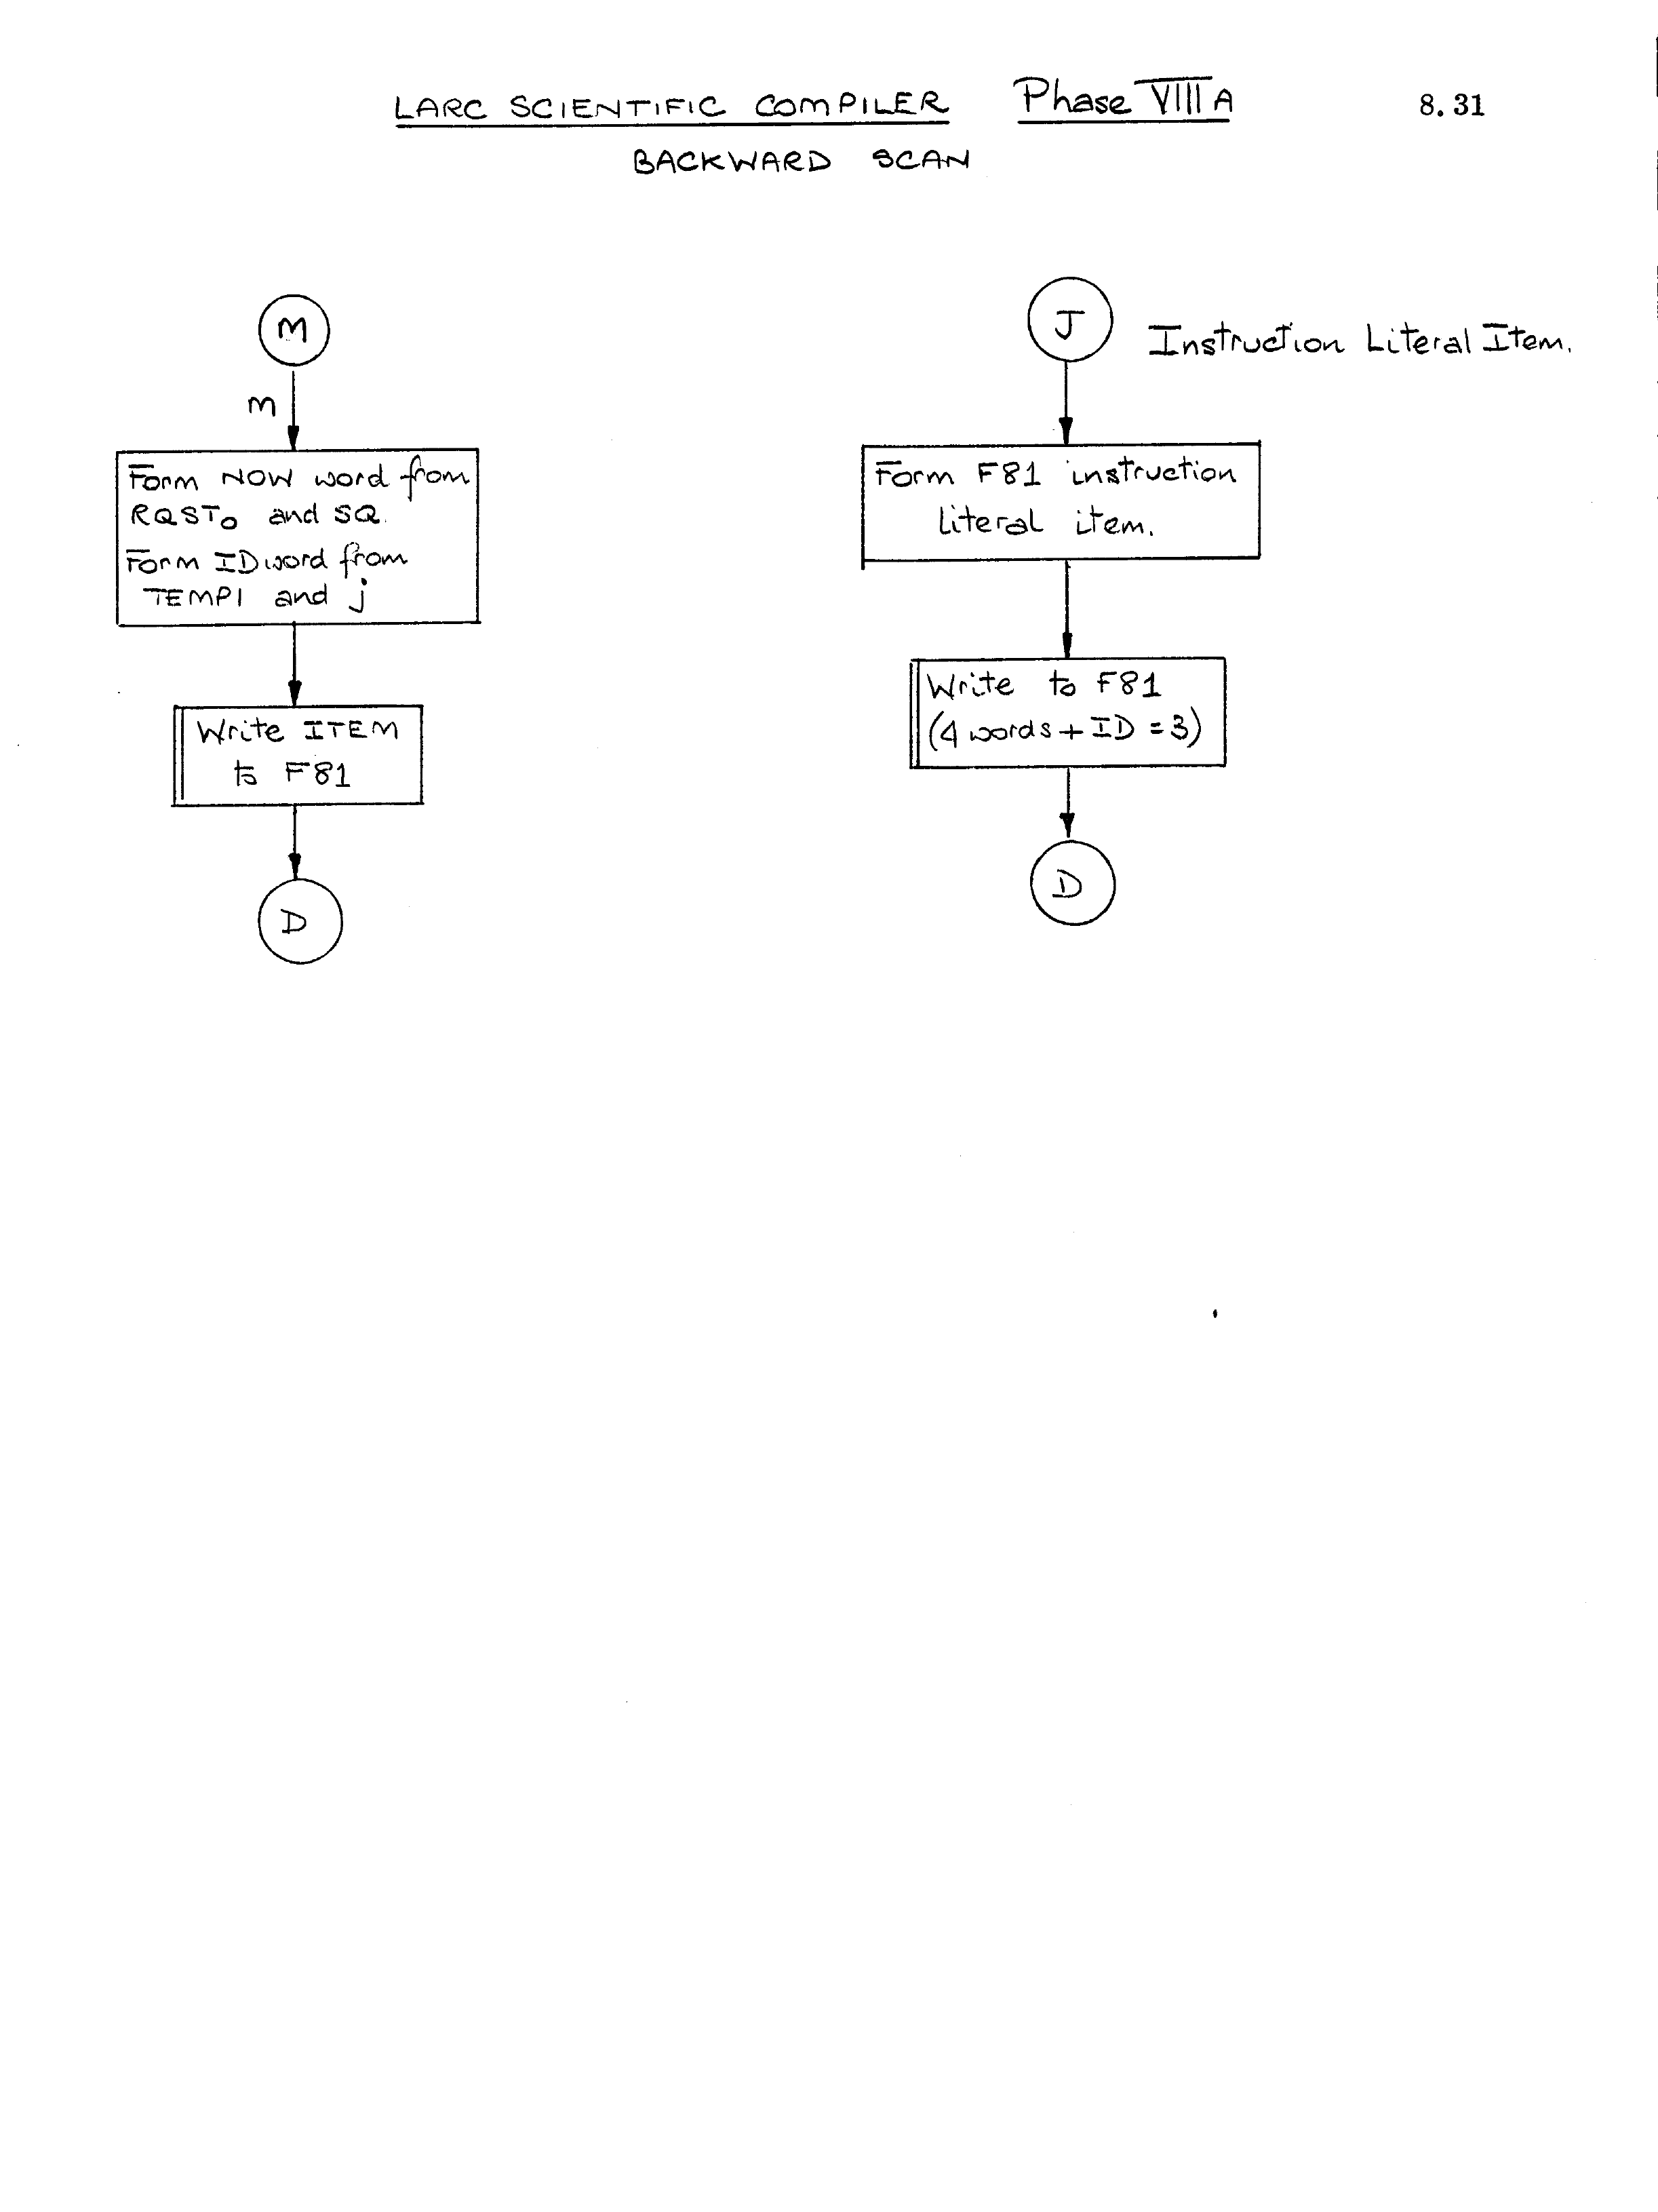 LARC SCIENTIFIC COMPILER Phase VIII A 8.31
BACKWARD SCAN
M
m
Form NOW word from
RQST₀ and SQ.
Form ID word from
TEMP1 and j
Write ITEM
to F81
D
J
Instruction Literal Item.
Form F81 instruction
literal item.
Write to F81
(4 words + ID = 3)
D